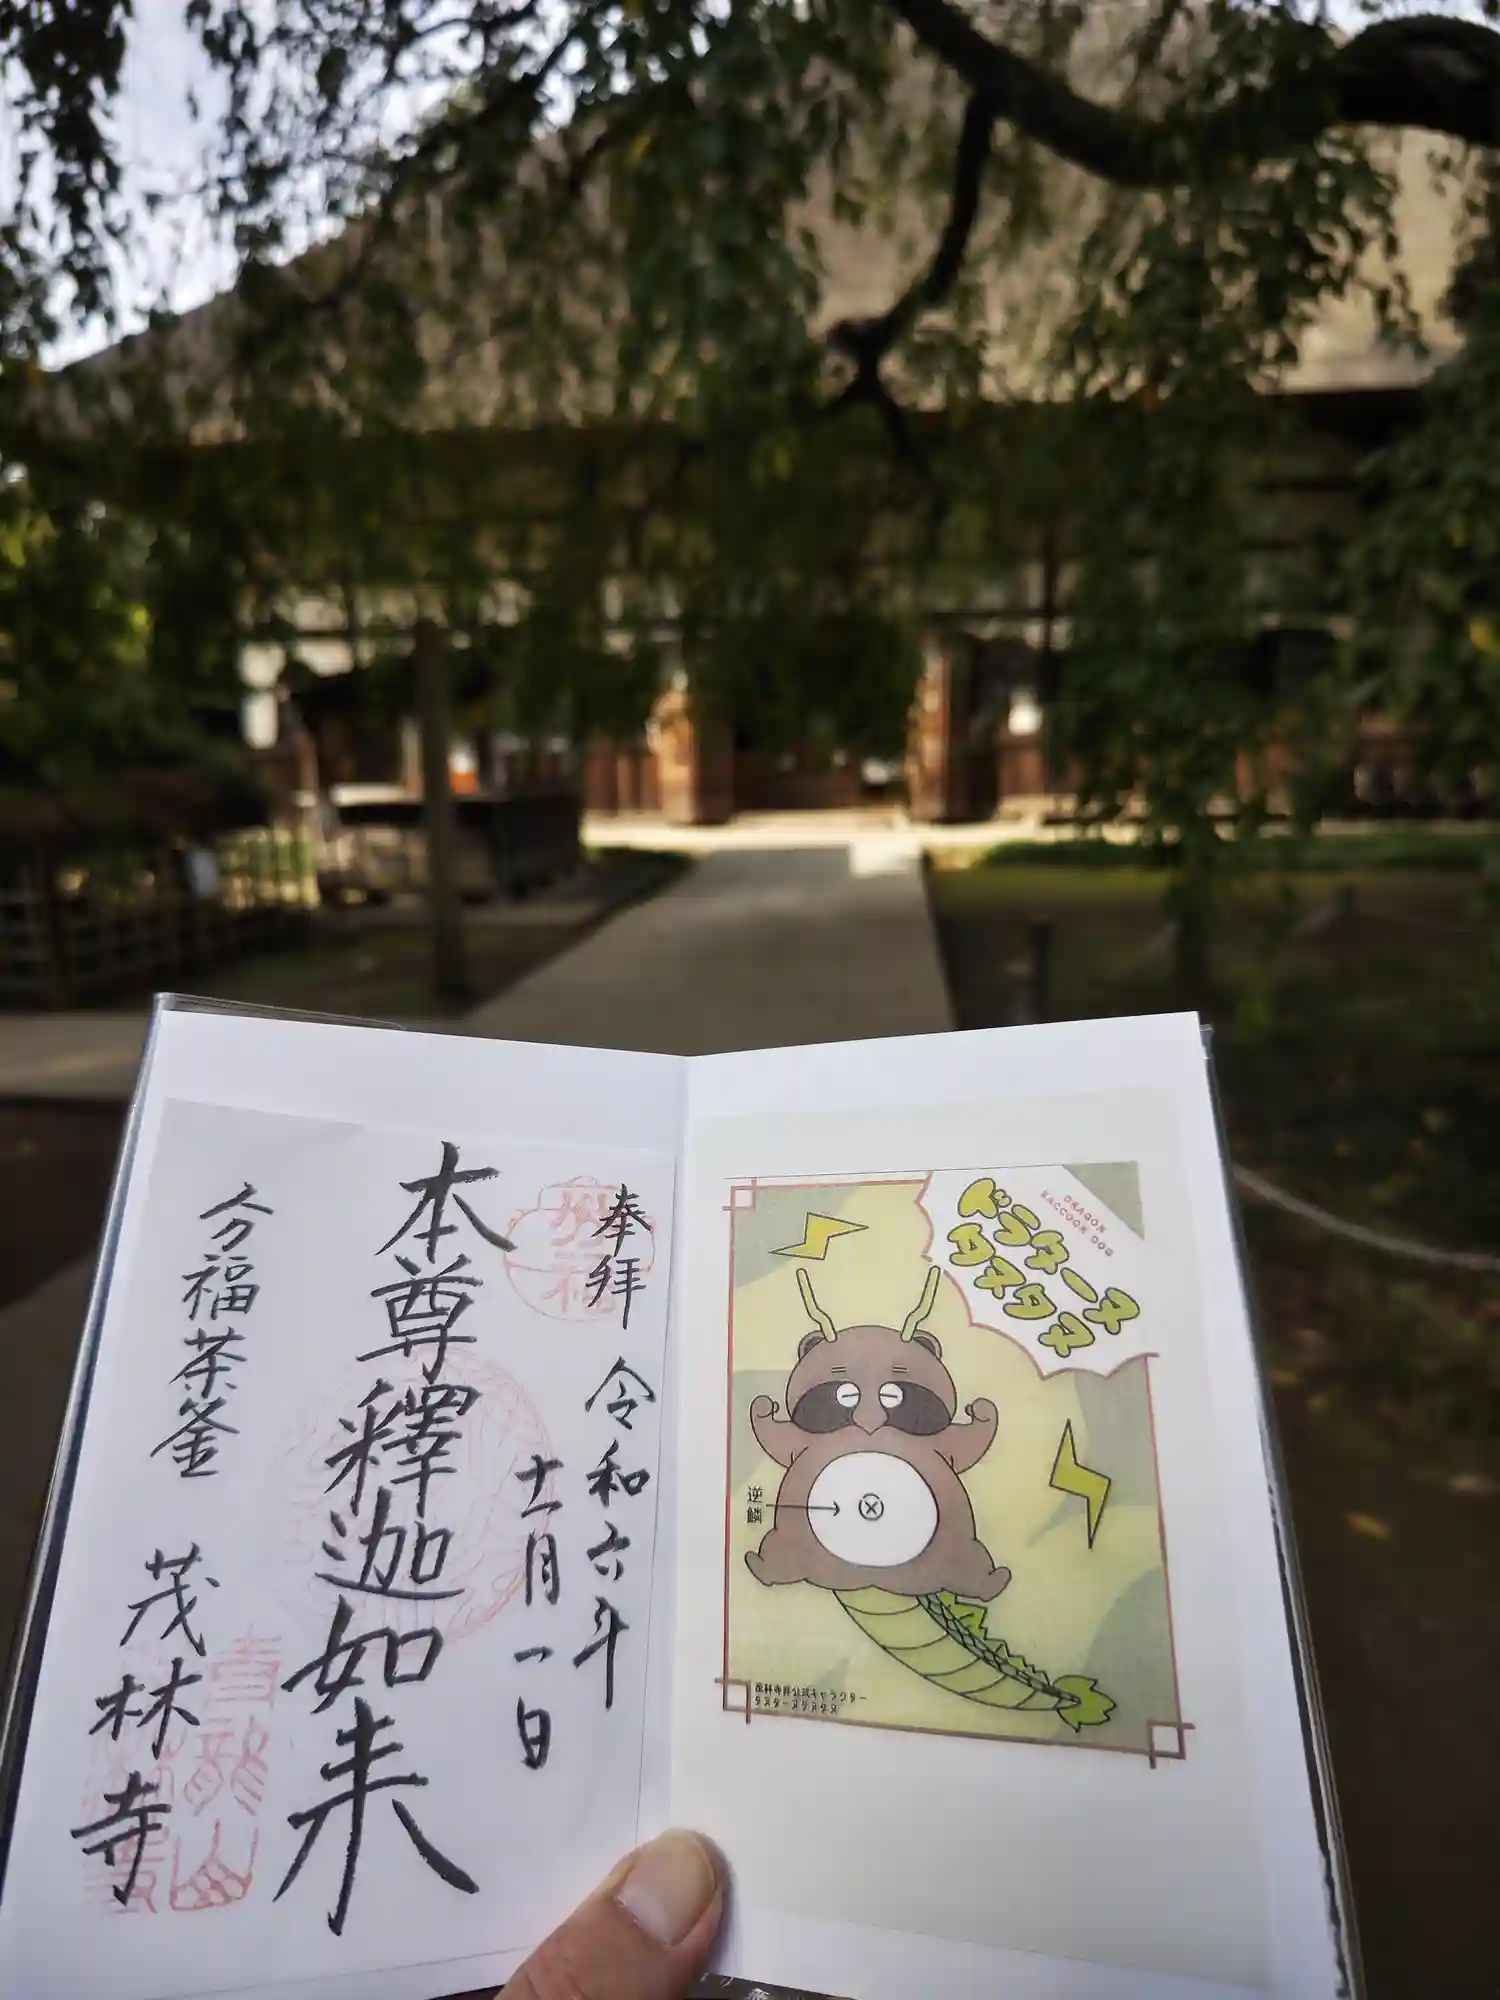 奉拝
令和六年
十一月一日
本尊釋迦如来
分福茶釜
茂林寺
分福
青龍山
ドラゴーヌ
タヌタヌ
DRAGON
RACCOON DOG
逆鱗
茂林寺非公式キャラクター
タヌターヌタヌタヌ